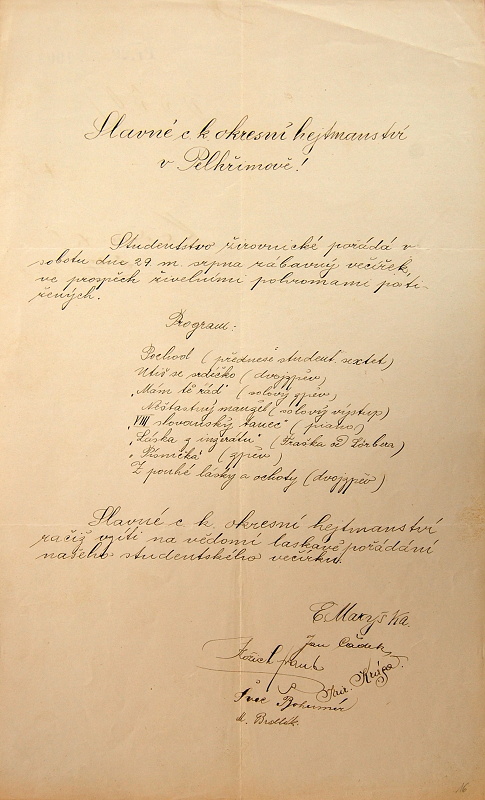 Slavné c. k. okresní hejtmanství
v Pelhřimově!
Studentstvo žirovnické pořádá v
sobotu dne 29. m. srpna zábavný večírek,
ve prospěch živelními pohromami posti-
žených.
Program:
Pochod (přednese student. sextet)
Utiš se srdéčko (dvojzpěv)
„Mám tě rád" (solový zpěv)
Nešťastný manžel (solový výstup)
„VIII slovanský tanec" (piano)
„Láska z inžrátu" (Fraška od)
„Písnička" (zpěv)
Z pouhé lásky a ochoty (dvojzpěv)
Slavné c. k. okresní hejtmanství
račiž vzíti na vědomí laskavě pořádání
našeho studentského večírku.
E. Maryška.
Jan Čádek
Frant.
Švec Bohumír
M. Brdlík.
16